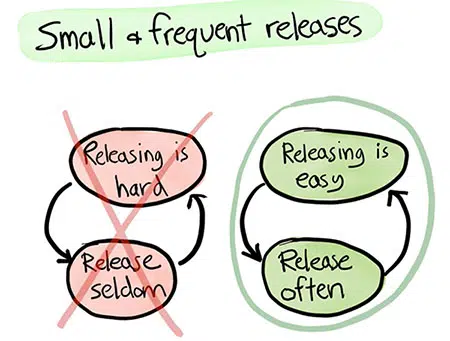 Small & frequent releases
Releasing is
hard
Release
seldom
Releasing is
easy
Release
often